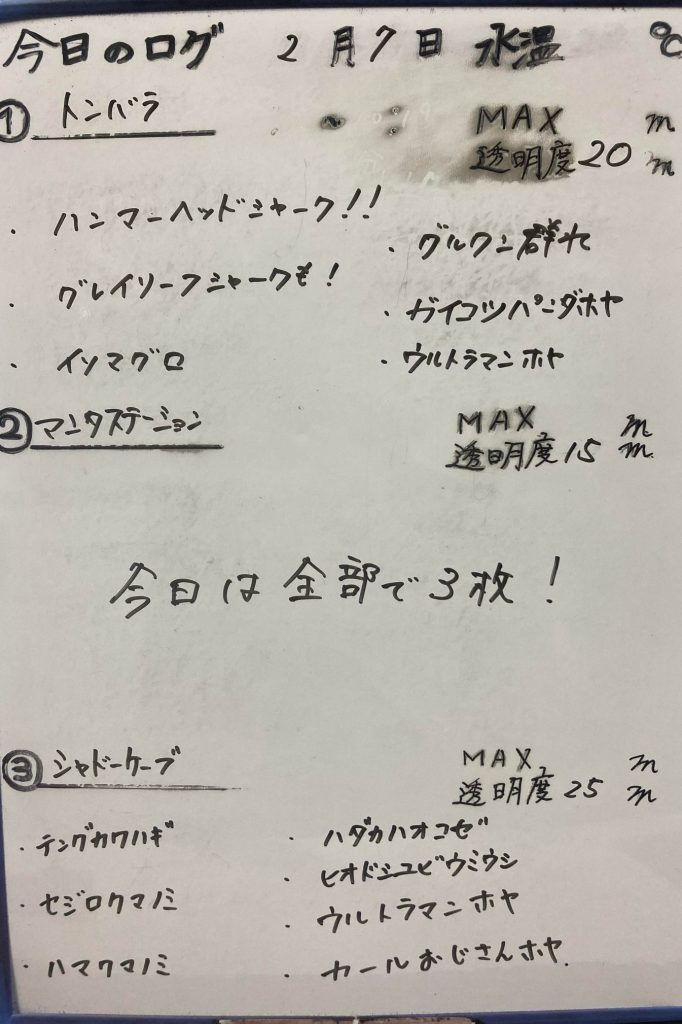 今日のログ 2月7日 水温 ℃
① トンバラ MAX m
透明度 20 m
・ハンマーヘッドシャーク!!
・グレイリーフシャークも!
・イソマグロ
・グルクン群れ
・ガイコツパンダホヤ
・ウルトラマンホヤ
② マンタステーション MAX m
透明度 15 m
今日は全部で3枚!
③ シャドーケーブ MAX m
透明度 25 m
・テングカワハギ
・セジロクマノミ
・ハマクマノミ
・ハダカハオコゼ
・ヒオドシユビウミウシ
・ウルトラマンホヤ
・カールおじさんホヤ.